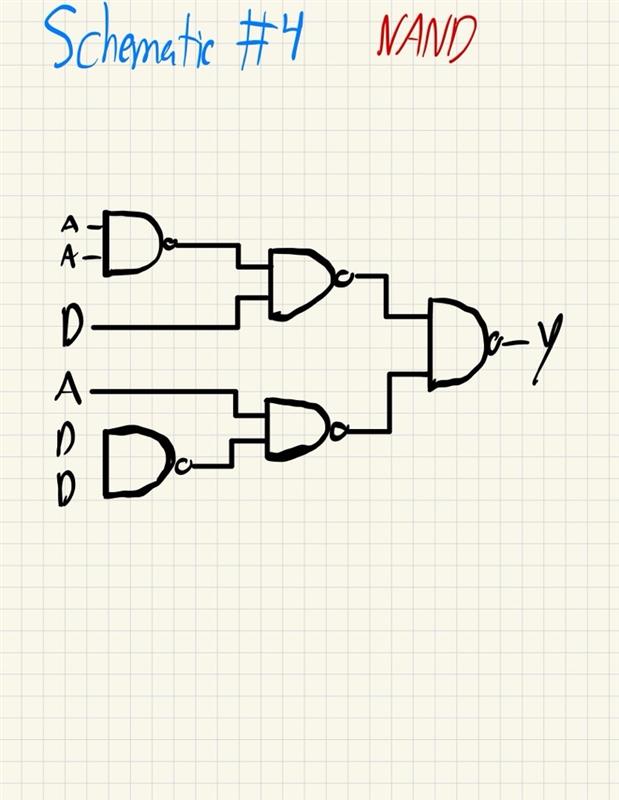 Schematic #4 NAND
A
A
D
A
D
D
Y